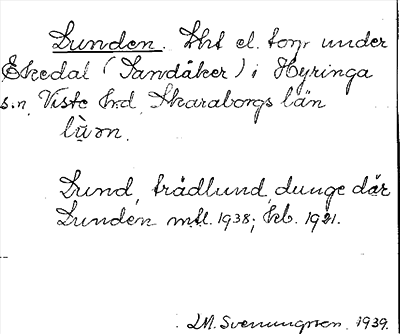 Lunden. Lht el. torp under
Ekedal (Sandåker) i Hyringa
s:n, Viste hrd, Skaraborgs län
lùn.
Lund, trädlund, dunge där
Lunden mtl. 1938; kb. 1921.
I.M. Svenungsson. 1939.